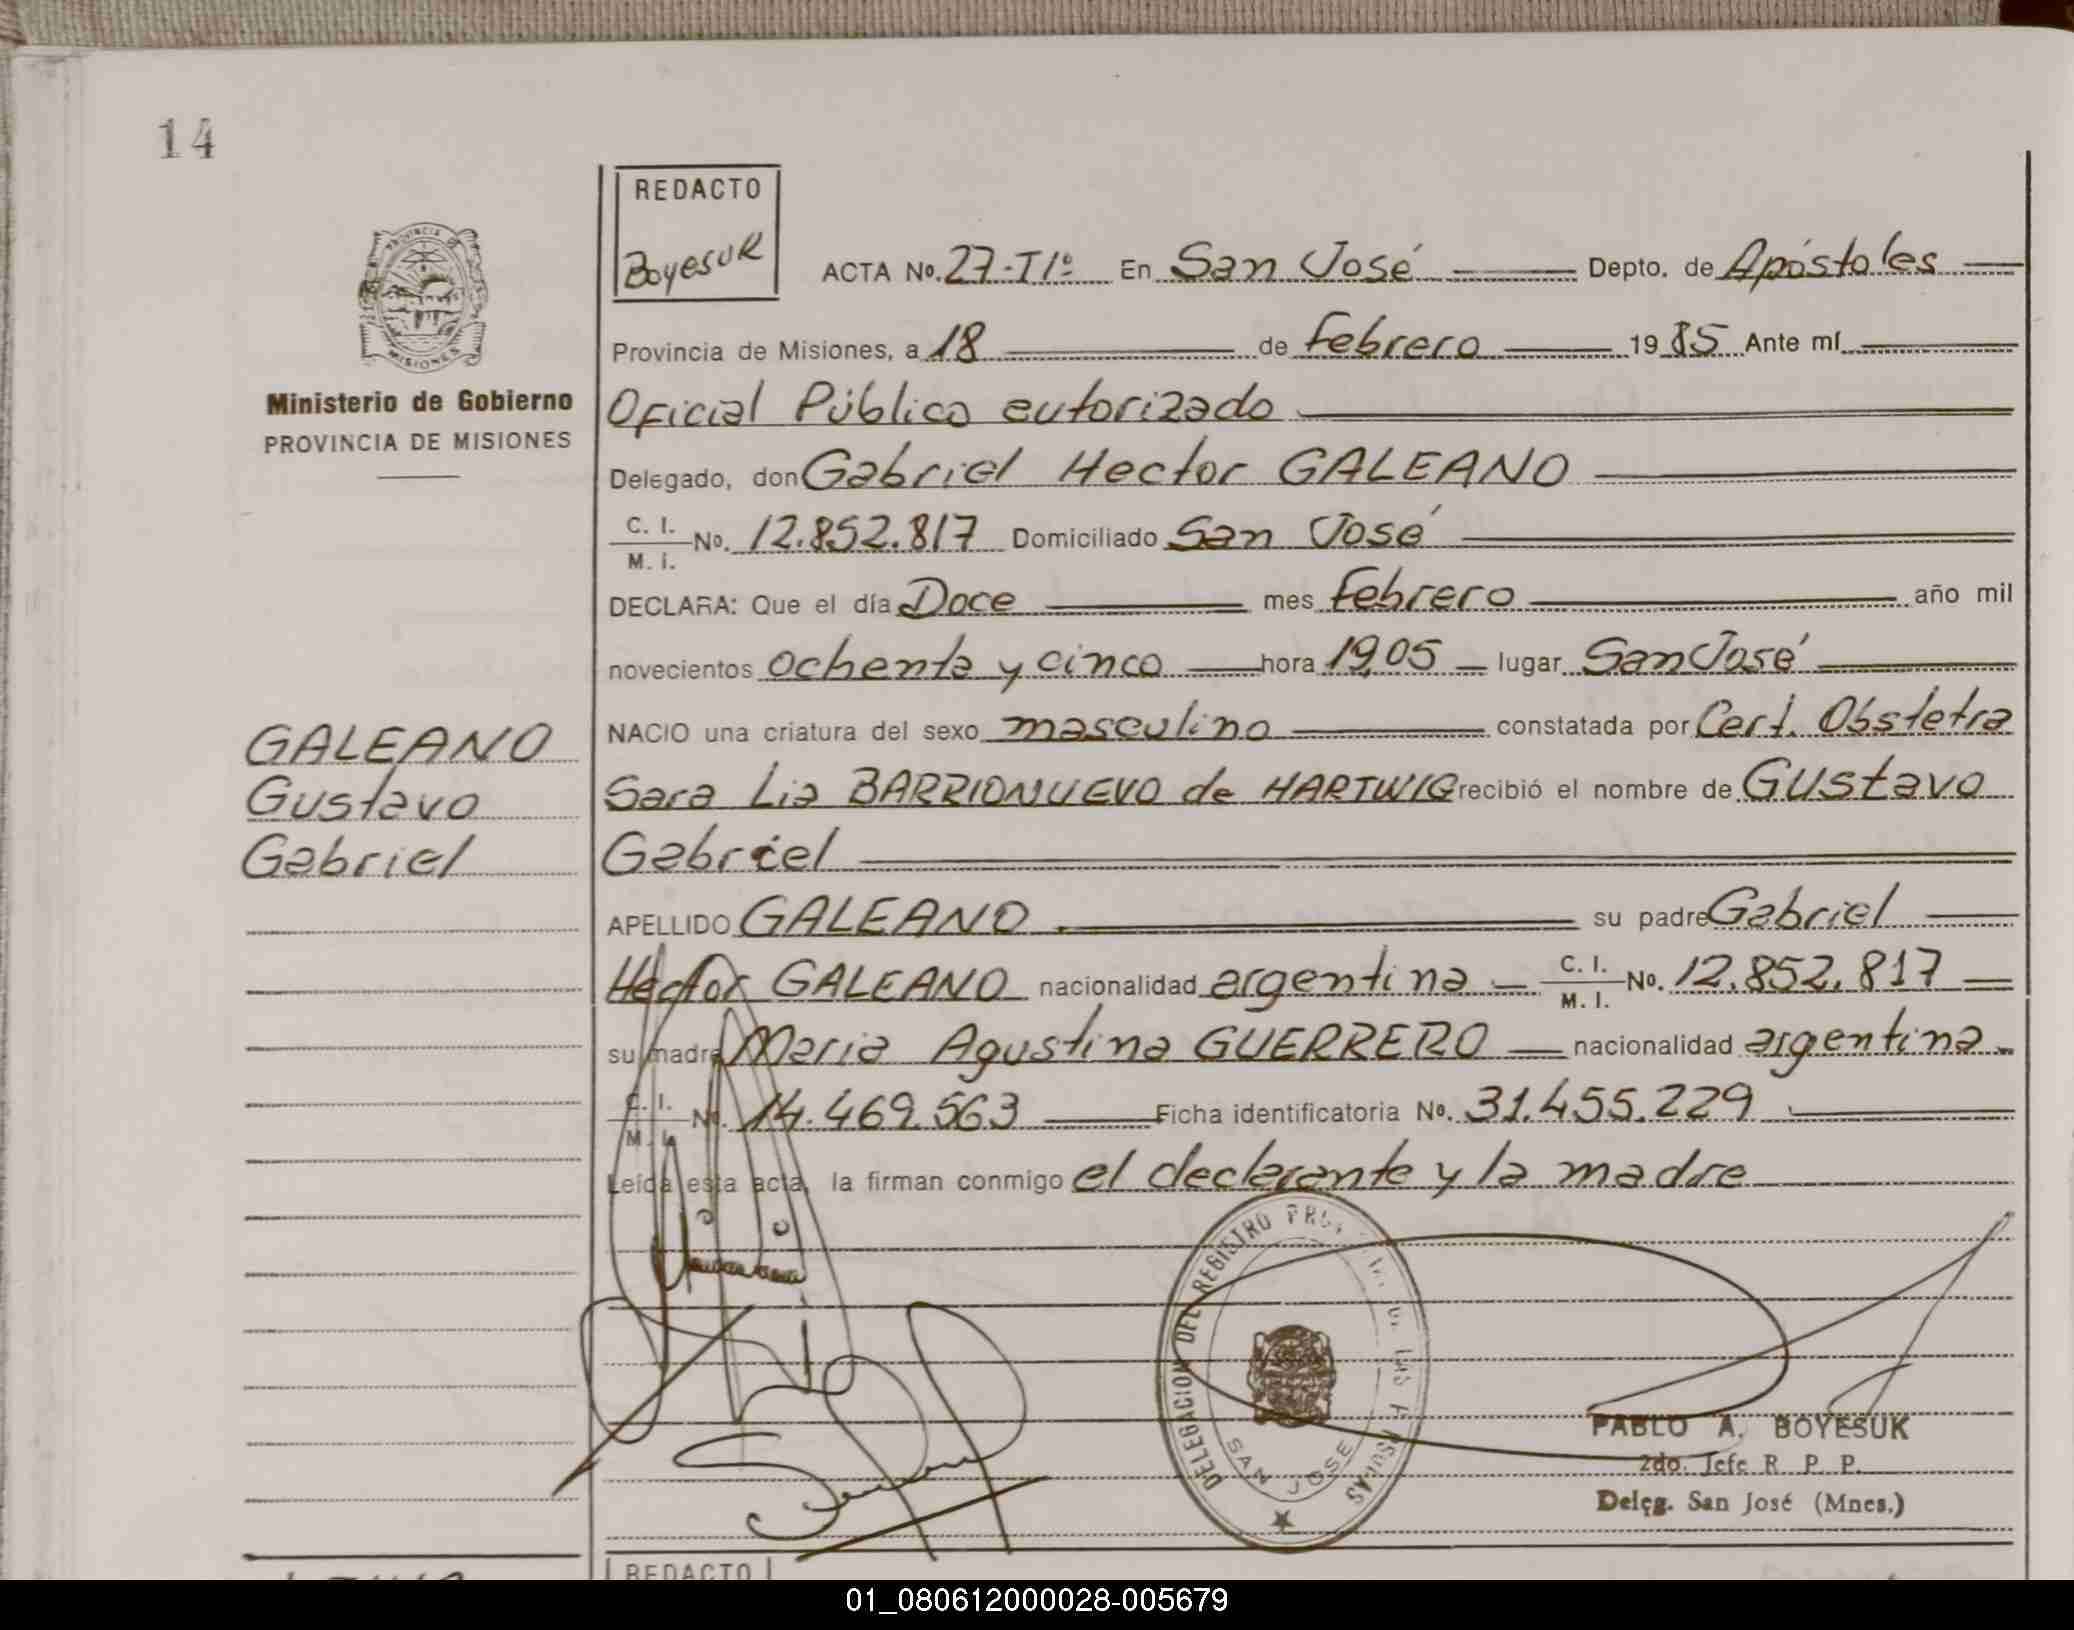 14
REDACTO
Boyesuk
ACTA No. 27-TIº En San José Depto. de Apóstoles
Provincia de Misiones, a 18 de Febrero 1985 Ante mí
Oficial Público autorizado
Delegado, don Gabriel Hector GALEANO
C. I. M. I. No. 12.852.817 Domiciliado San José
DECLARA: Que el día Doce mes Febrero año mil
novecientos ochenta y cinco hora 19,05 lugar San José
NACIO una criatura del sexo masculino constatada por Cert. Obstetra
Sara Lia BARRIONUEVO de HARTWIG recibió el nombre de Gustavo
Gabriel
APELLIDO GALEANO su padre Gabriel
Hector GALEANO nacionalidad argentina C. I. M. I. No. 12.852.817
su madre Maria Agustina GUERRERO nacionalidad argentina
C. I. M. I. No. 14.469.563 Ficha identificatoria No. 31.455.229
Leída esta acta, la firman conmigo el declarante y la madre
PROVINCIA DE
MISIONES
Ministerio de Gobierno
PROVINCIA DE MISIONES
GALEANO
Gustavo
Gabriel
DELEGACION DEL REGISTRO
DE LAS PERSONAS
SAN JOSE
PABLO A. BOYESUK
2do. Jefe R. P. P.
Deleg. San José (Mnes.)
REDACTO
01_080612000028-005679